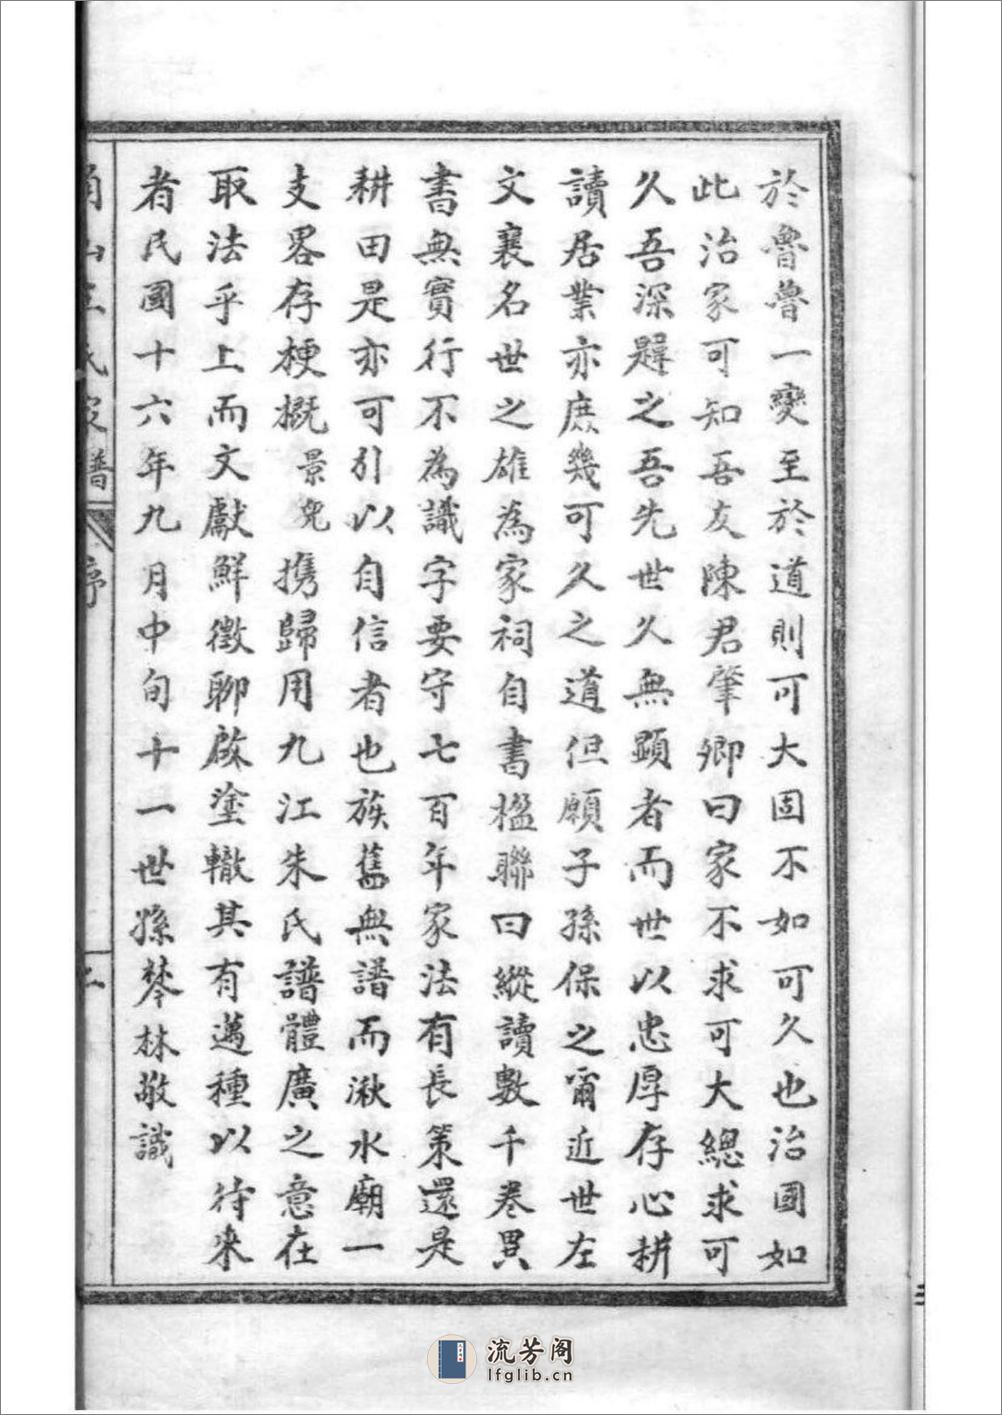 於魯魯一變至於道則可大固不如可久也治國如
此治家可知吾友陳君肇卿曰家不求可大總求可
久吾深韙之吾先世久無顯者而世以忠厚存心耕
讀居業亦庶幾可久之道但願子孫保之爾近世左
文襄名世之雄為家祠自書楹聯曰縱讀數千卷異
書無實行不為識字要守七百年家法有長策還是
耕田是亦可引以自信者也族舊無譜而湫水廟一
支畧存梗概景兒携歸用九江朱氏譜體廣之意在
取法乎上而文獻鮮徵聊啟塗轍其有邁種以待來
者民國十六年九月中旬十一世孫棽林敬識
氏家譜
序
流芳阁
lfglib.cn